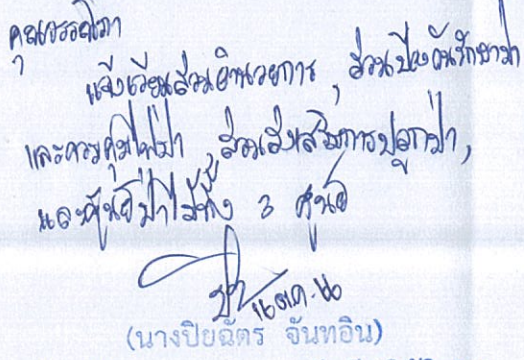 คุณวรรณิภา
แจ้งเวียนส่วนอำนวยการ, ส่วนป้องกันรักษาป่า
และควบคุมไฟป่า, ส่วนส่งเสริมการปลูกป่า,
และศูนย์ป่าไม้ทั้ง 3 ศูนย์
(นางปิยฉัตร จันทอิน)